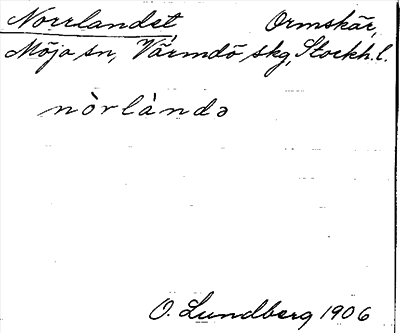 Norrlandet Ormskär,
Möja sn, Värmdö skg, Stockh. l.
nòrlàndə
O. Lundberg 1906